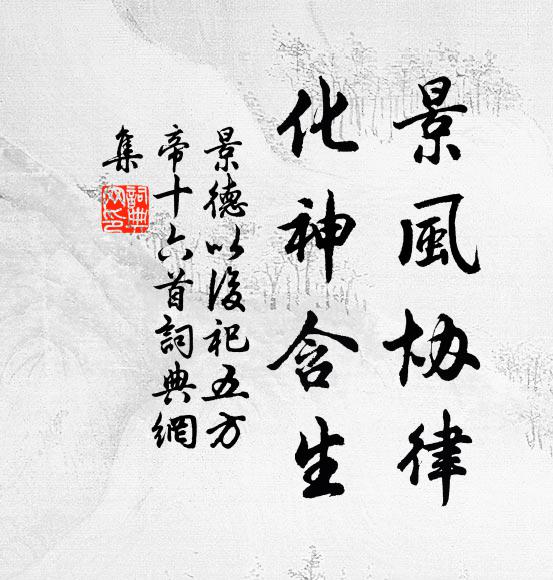 景風协律
化神含生
景德以後祀五方
帝十六首詞典網
集
詞典網印